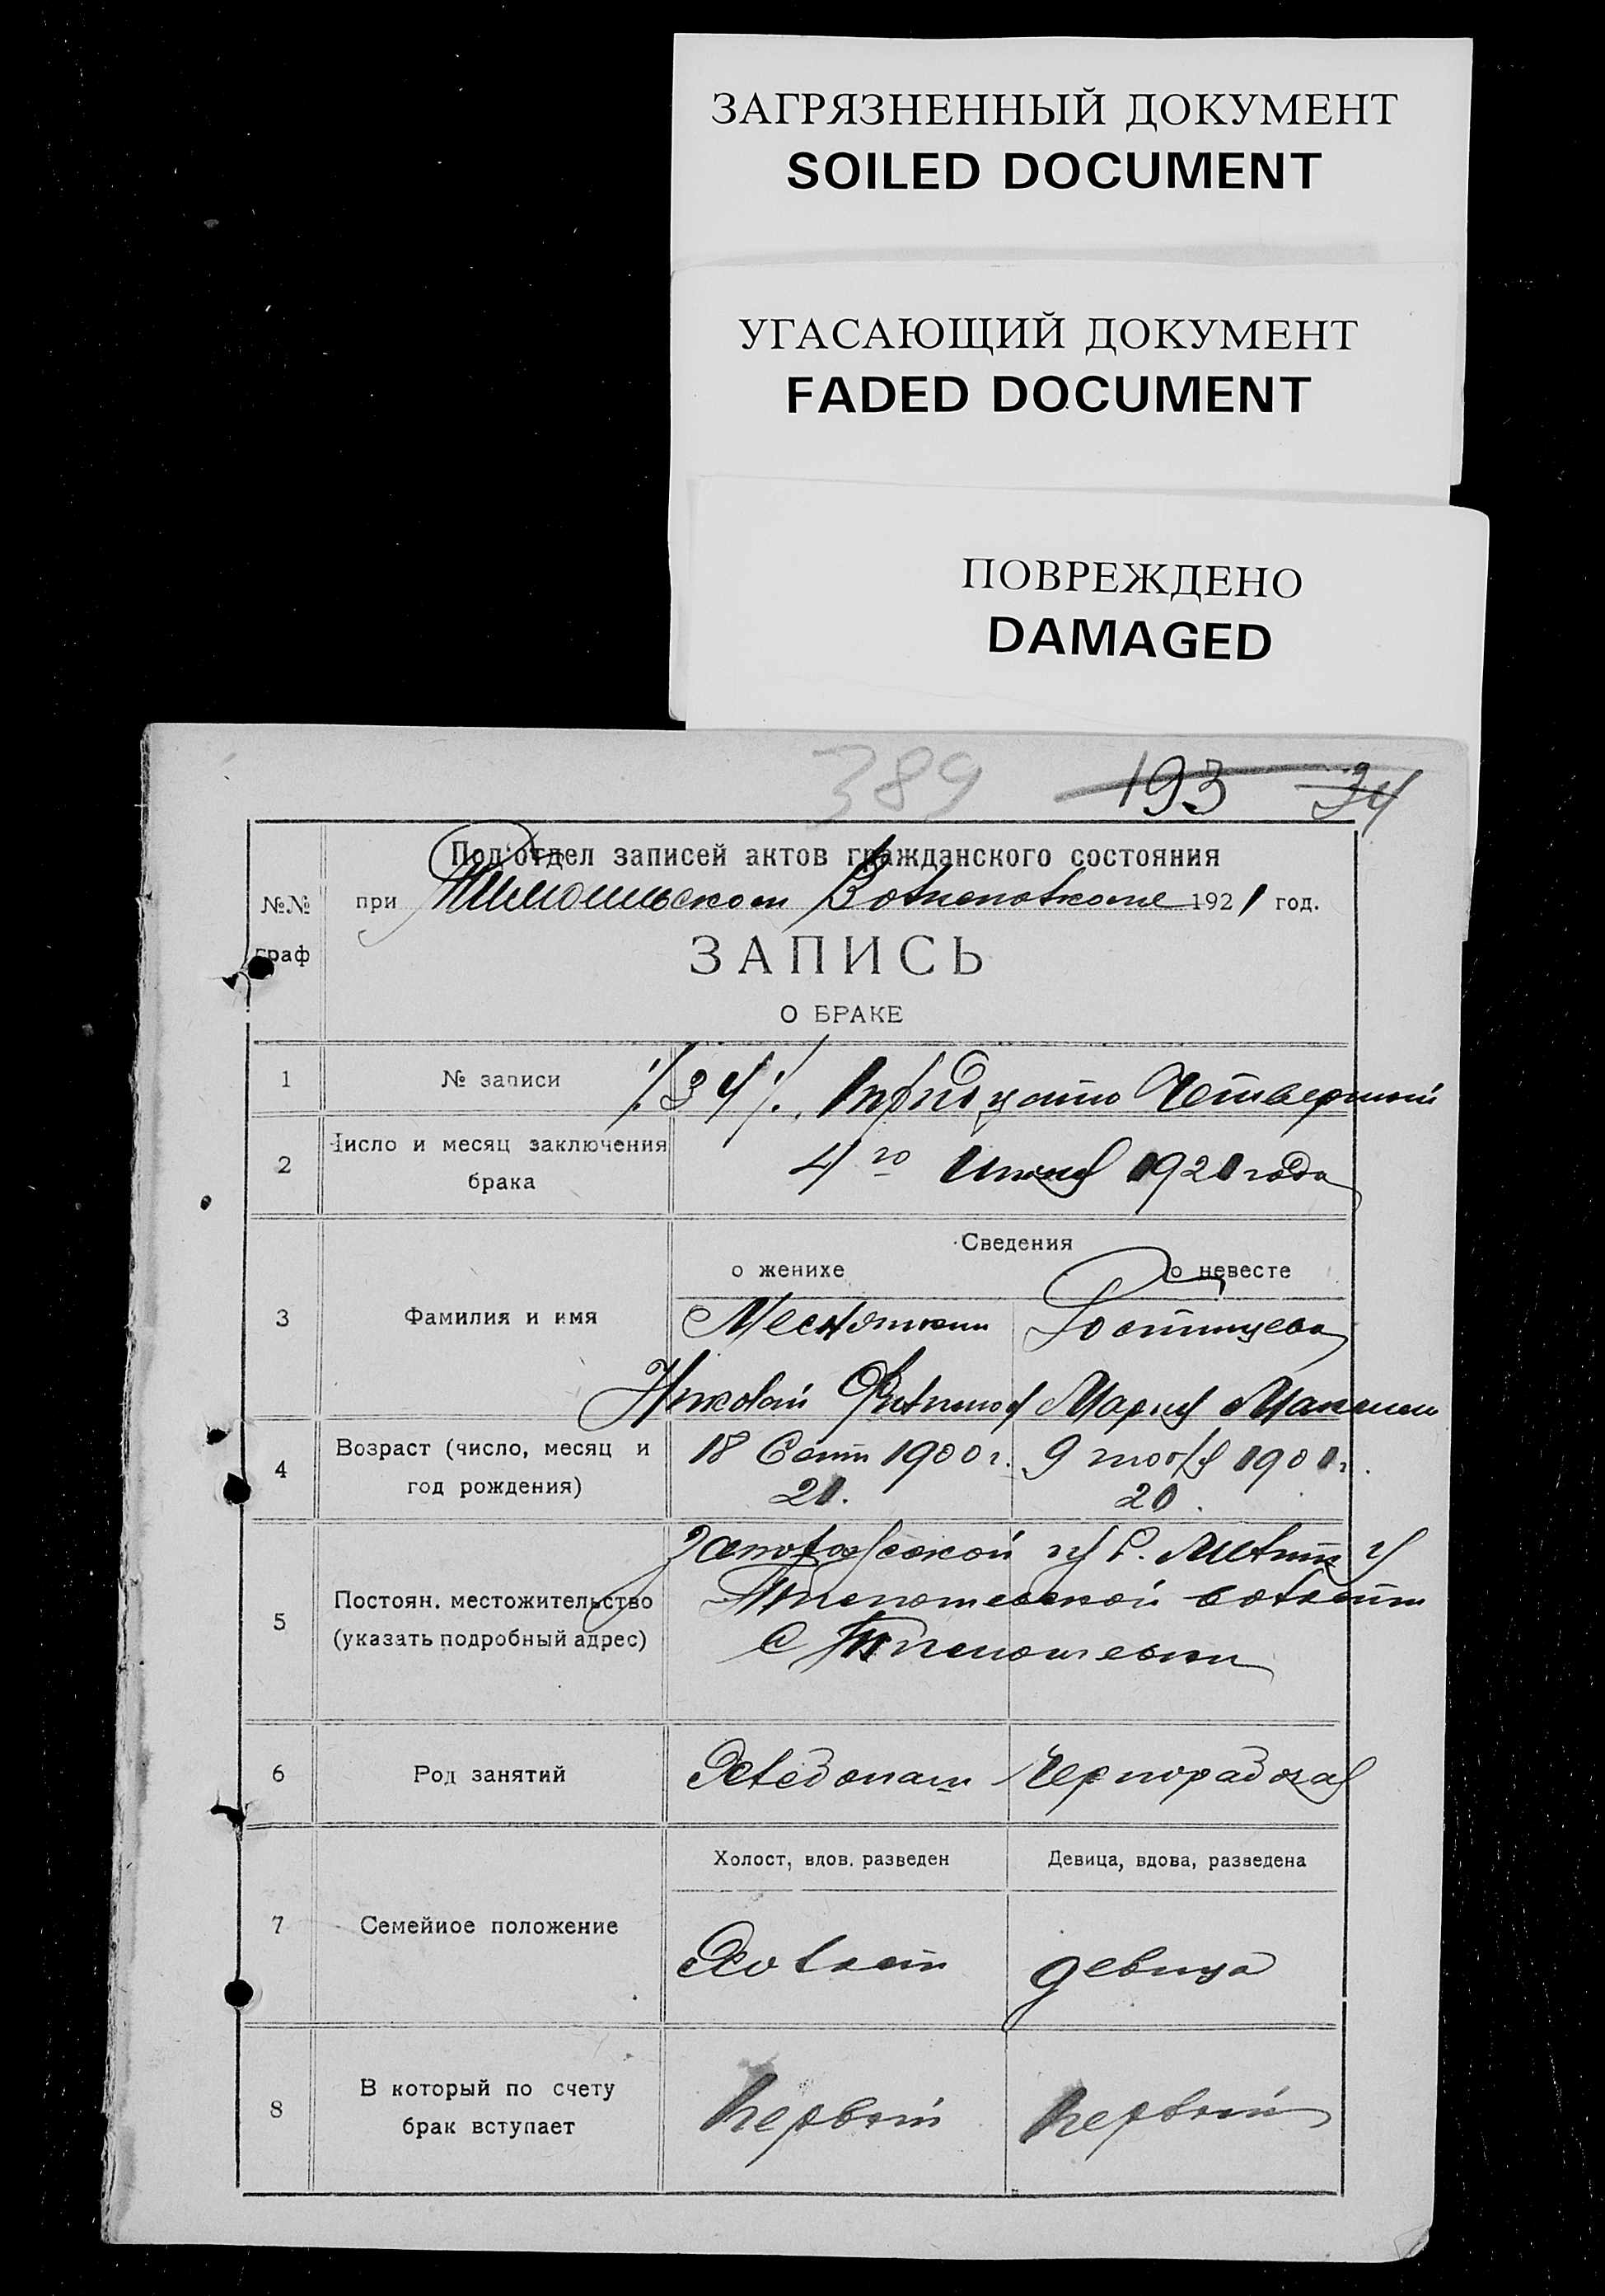 ЗАГРЯЗНЕННЫЙ ДОКУМЕНТ
SOILED DOCUMENT
УГАСАЮЩИЙ ДОКУМЕНТ
FADED DOCUMENT
ПОВРЕЖДЕНО
DAMAGED
389 193 34
Под'отдел записей актов гражданского состояния
№№ граф
при Волисполкоме 1921 год.
ЗАПИСЬ
О БРАКЕ
1 № записи 34 Тридцать Четвертый
2 Число и месяц заключения брака 4го 1921 года
Сведения
о женихе о невесте
3 Фамилия и имя
Николай Филипов Мария Максим
4 Возраст (число, месяц и год рождения) 18 Сент 1900 г. 9 1901 г.
21. 20.
5 Постоян. местожительство (указать подробный адрес)
Запорожской г. у
волости
С
6 Род занятий Хлебопаш Чернорабочая
Холост, вдов. разведен Девица, вдова, разведена
7 Семейное положение Холост девица
8 В который по счету брак вступает первый первый